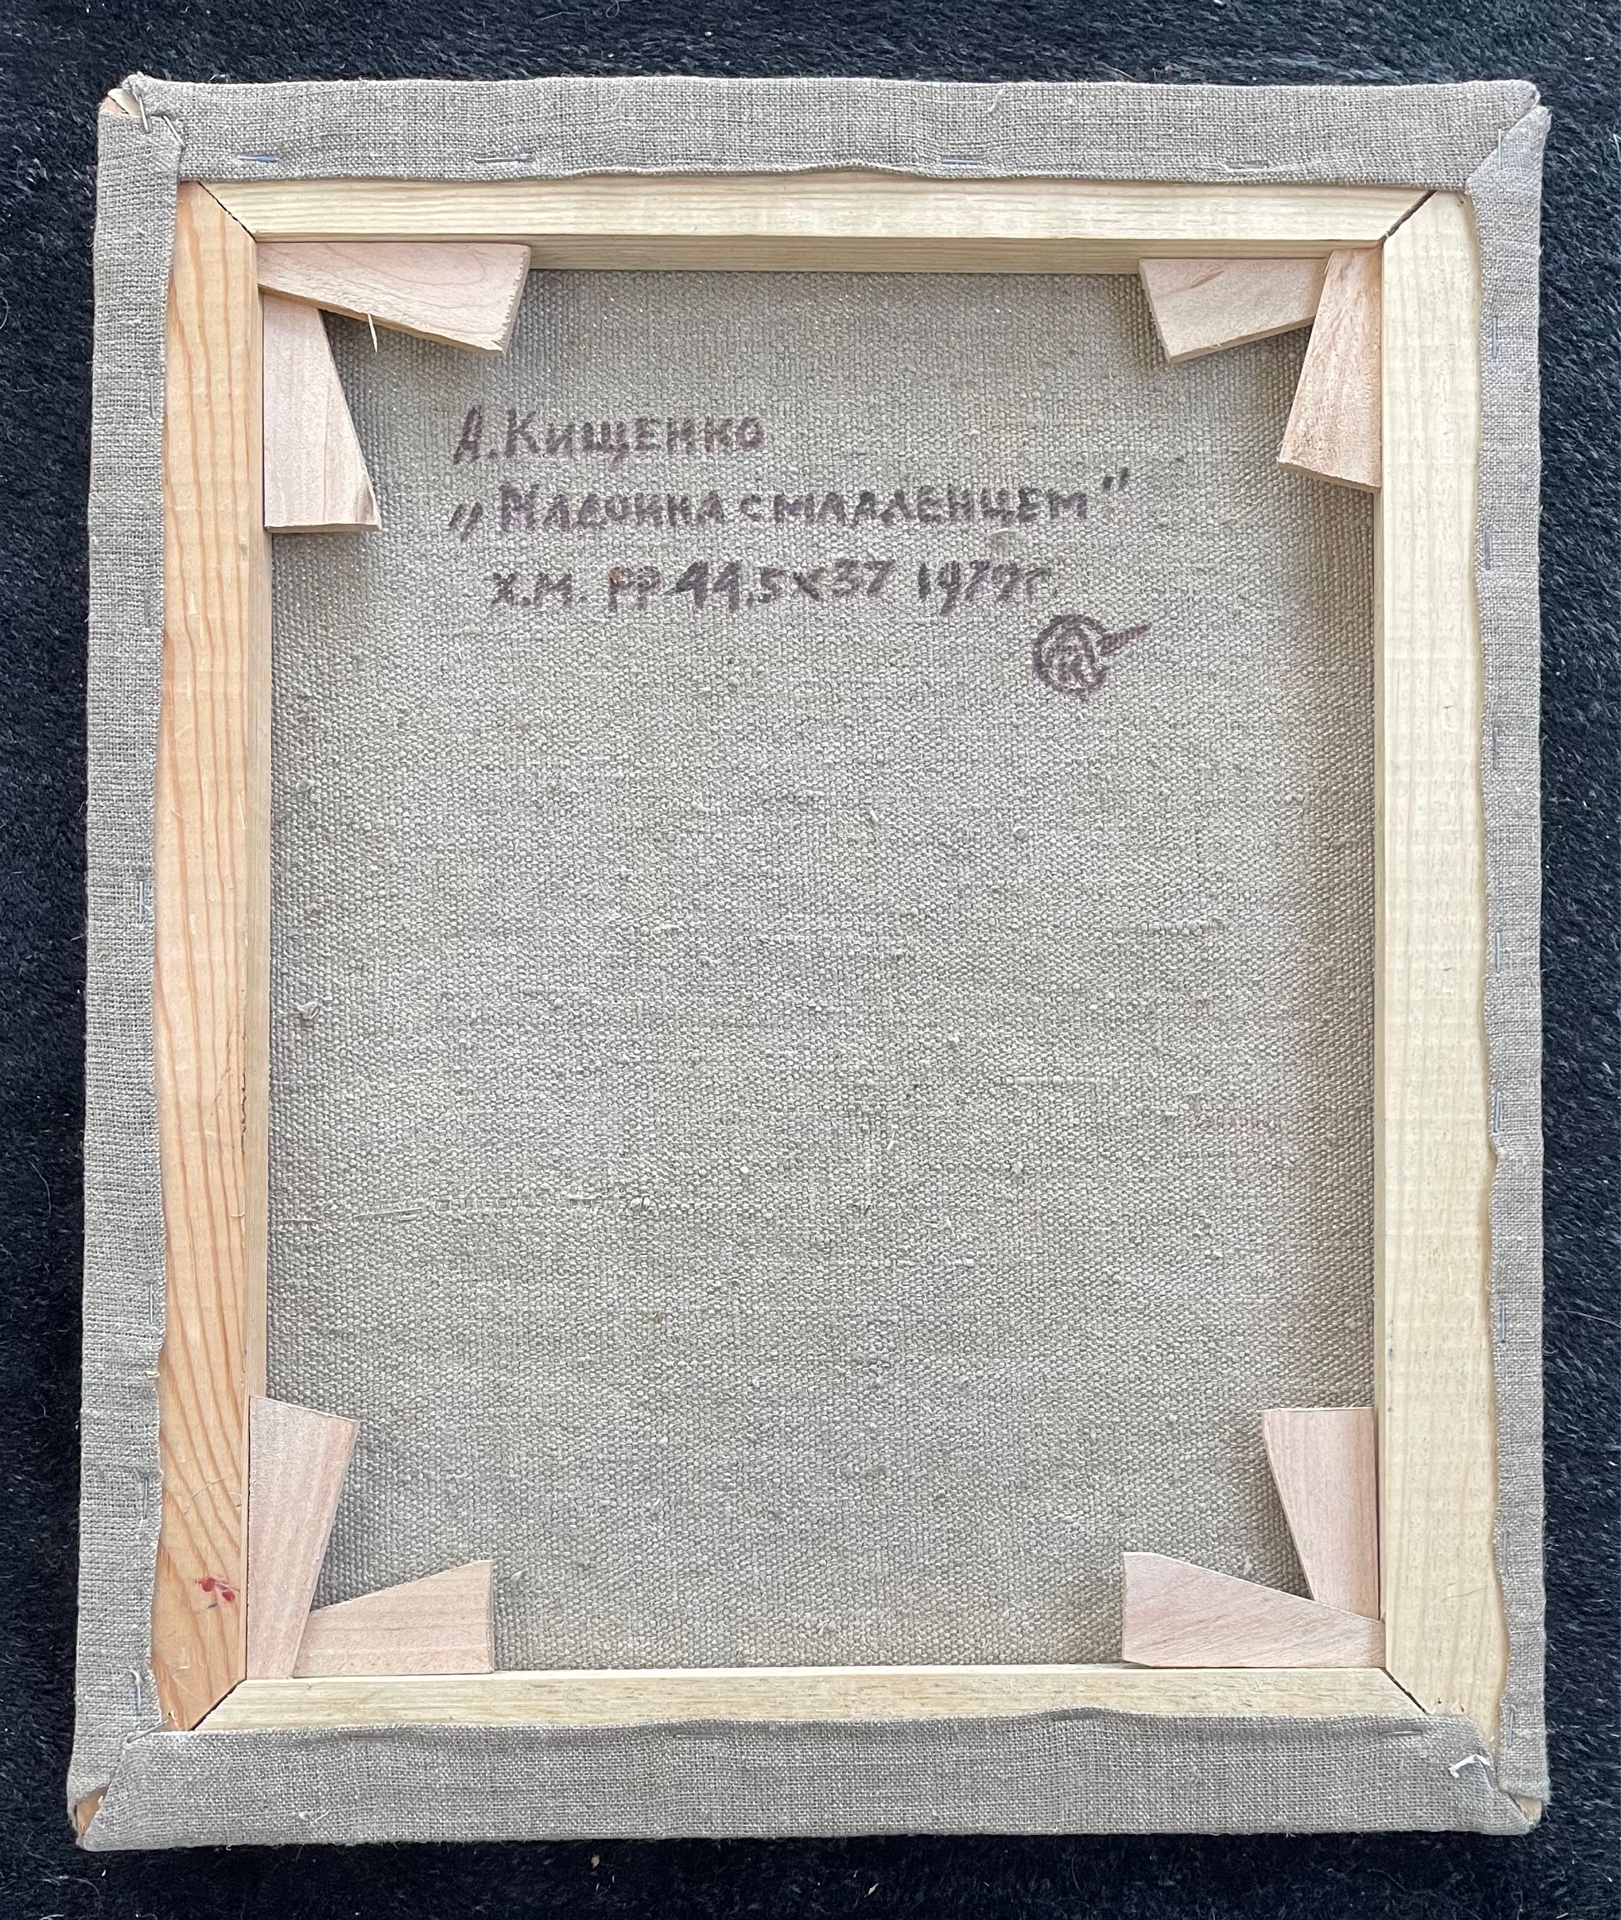 А. Кищенко
„Мадонна с младенцем"
Х.М. РР 44,5х37 1979г.